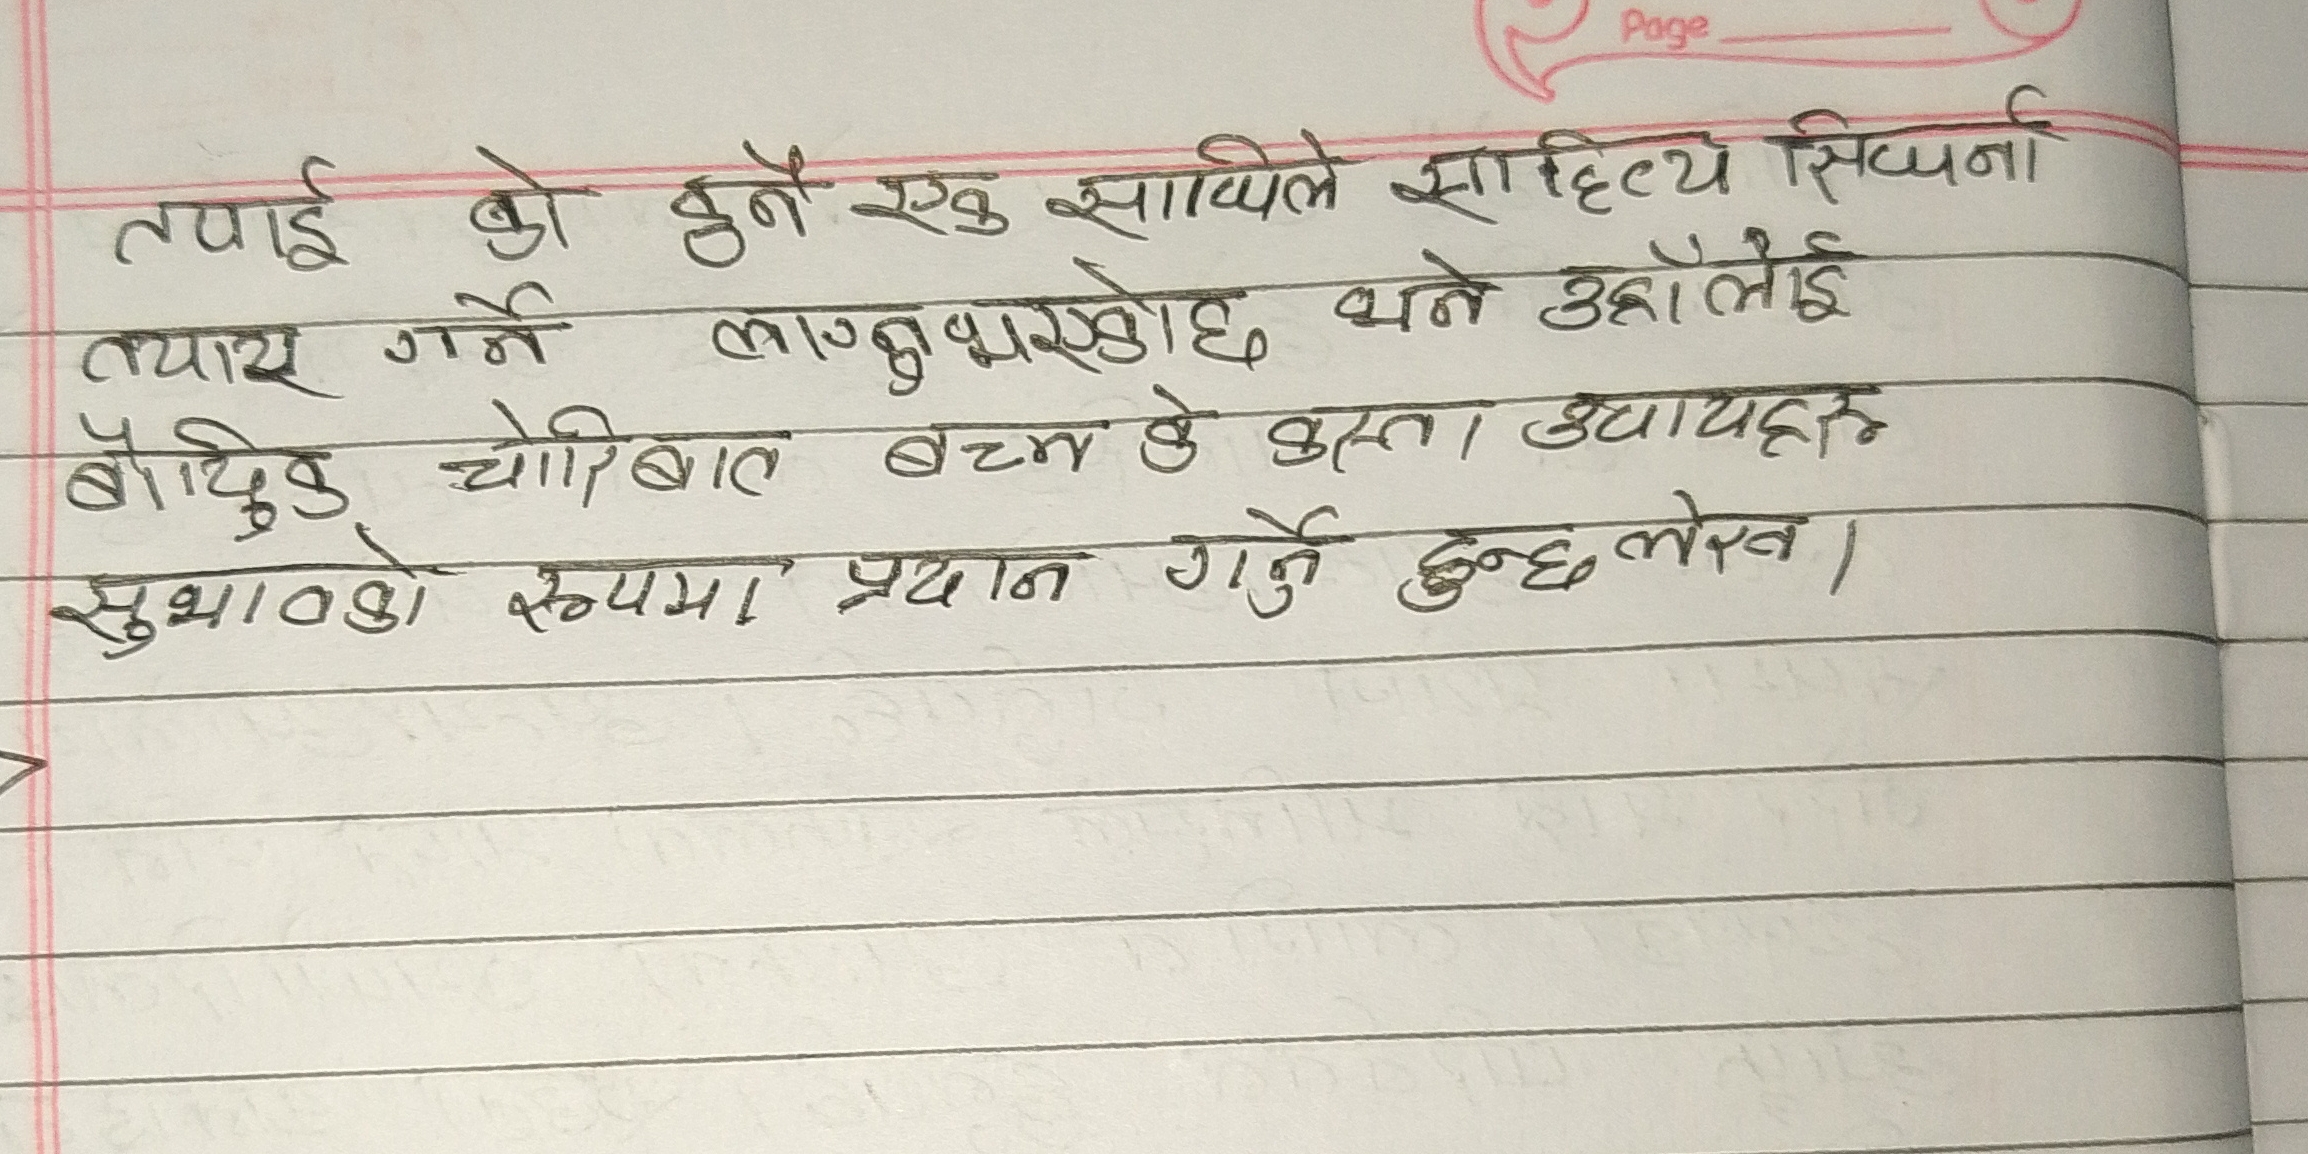 Page
तपाई को कुनै एक साथिले साहित्य सिर्जना
तयार गर्ने लाग्नुभएकोछ भने उहाँलाई
बौद्धिक चोरिबाट बच्न के कस्ता उपायहरू
सुझावको रूपमा प्रदान गर्नु हुन्छ लेख ।